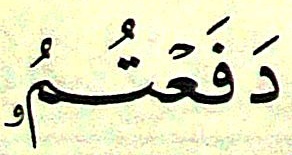 دَفَعۡتُمُۥ